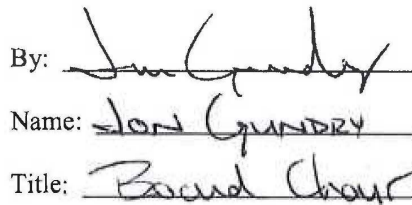 By: Jon Gundry
Name: JON GUNDRY
Title: Board Chair